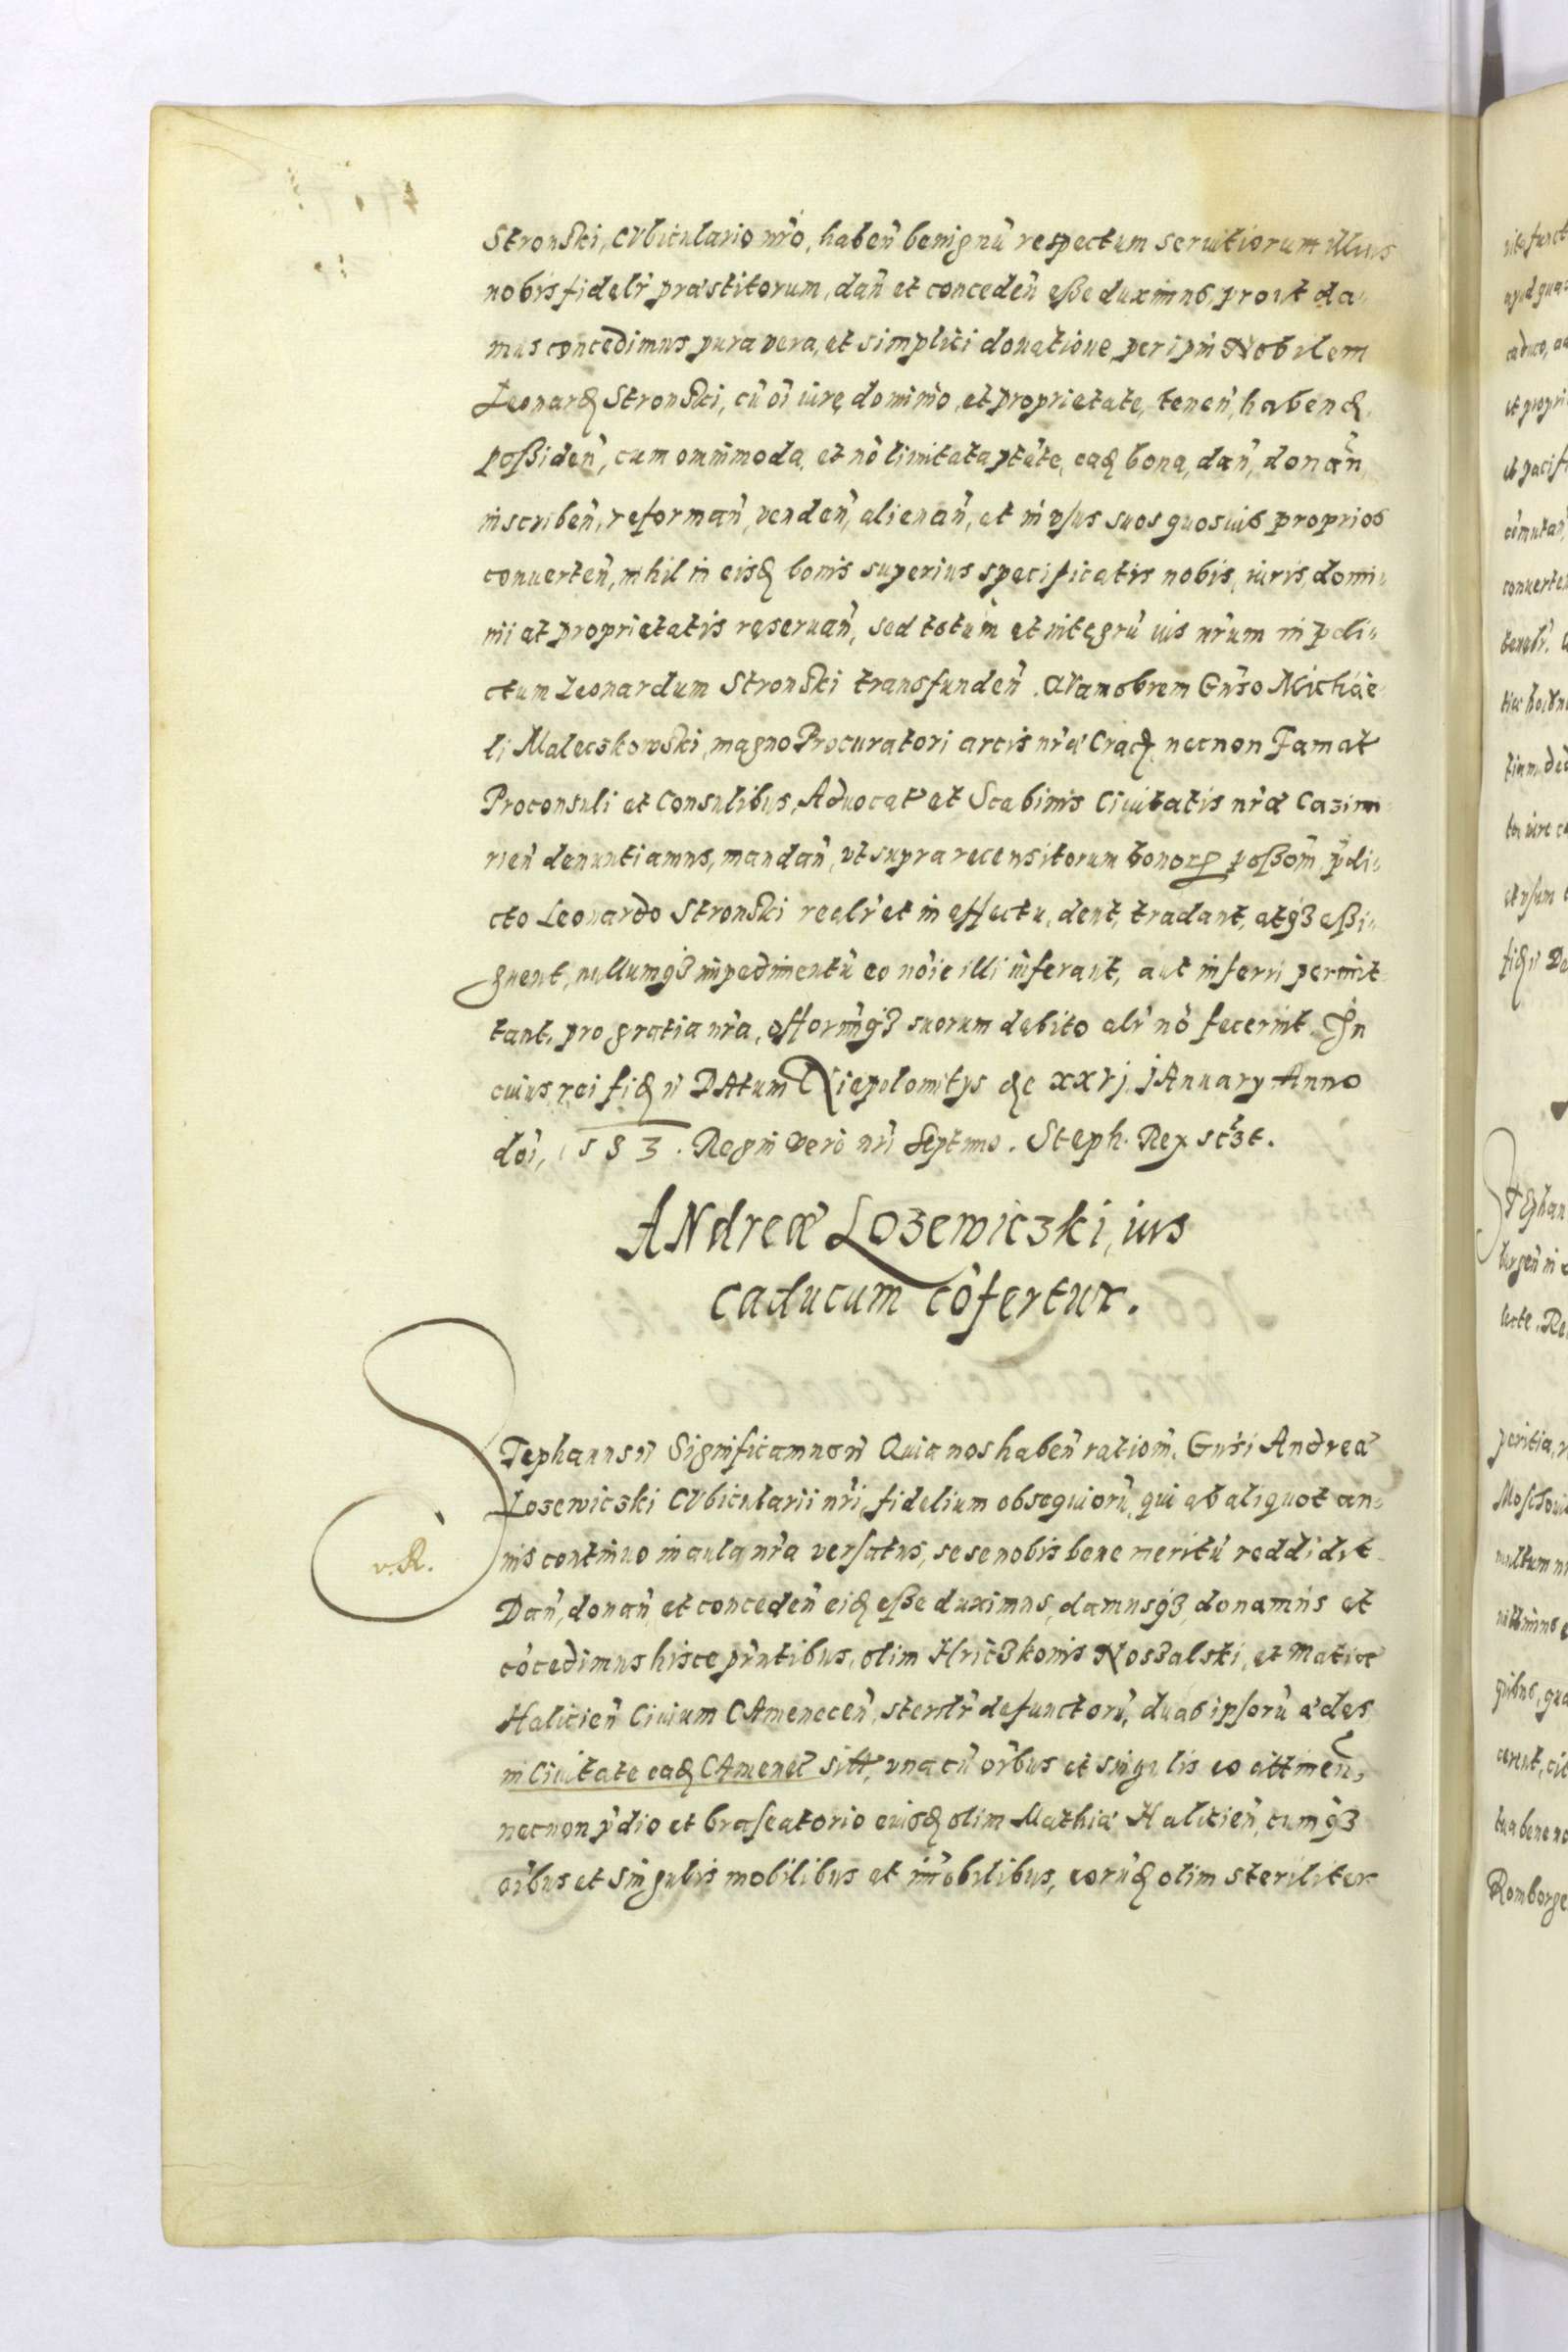 Stronski, CVbiculario nr̃o, habeñ benignũ respectum seruitiorum illius
nobis fidelr̃ præstitorum, dañ et concedeñ eße duximus, prout da„
mus concedimus pura vera, et simplici donatione, per ipm̃ Nobilem
Leonardꝫ Stronski, cũ oĩ iure, dominio, et proprietate, teneñ, habendꝫ,
poßideñ, cum omnimoda, et nõ limitata ptãte, eadꝫ bona, dañ, donañ,
inscribeñ, reformañ, vendeñ, alienañ, et in vsus suos quosuis proprios
conuerteñ, nihil in eisdꝫ bonis superius specificatis nobis, iuris, domi„
nii et proprietatis reseruañ, sed totum et integrũ ius nr̃um in p̃di„
ctum Leonardum Stronski transfundeñ. QVamobrem Gnr̃so Michae
li Maleczkowski, magno Procuratori arcis nr̃æ Cracꝫ. necnon Famat
Proconsuli et Consulibus, Aduocat̃ et Scabinis Ciuitatis nr̃æ Cazimi
rieñ denuntiamus, mandañ, vt supra recensitorum bonorꝫ poßom̃ p̃di„
cto Leonardo Stronski realr̃ et in effectu, dent, tradant, atqꝫ aßi„
gnent, nullumqꝫ impedimentũ eo nõie illi inferant, aut inferri permit
tant, pro gratia nr̃a, offormq̃ꝫ suorum debito alr̃ nõ fecerint. In
cuius rei fidꝫ ñ DAtum Niepolomitys die xxvj jAnuary Anno
dõi, 1583. Regni vero nr̃i Septimo. Steph. Rex sctꝫt.
ANdreæ Lozewiczki, ius
caducum cõfertur.
STephanus ñ Significamus ñ Quia nos habeñ ratiom̃. Gnr̃si Andreæ
Lozewiczki CVbicularii nr̃i, fidelium obsequiorũ, qui ab aliquot an„
nis continuo in aula nr̃a versatus, sese nobis bene meritũ reddidit.
v.R.
Dañ, donañ et concedeñ eidꝫ eße duximus, damusqꝫ, donamus et
cõcedimus hisce pñtibus, olim Hritzkonis Noszalski, et Matiæ
Halicieñ Ciuium CAmeneceñ, sterilr̃ defunctorũ, duas ipsorũ ædes
in Ciuitate eadꝫ CAmenec̃ sitt, vna cũ oĩbus et singulis eo attineñ,
necnon p̃dio et braseatorio eiusdꝫ olim Mathiæ Halicieñ, cumqꝫ
oĩbus et singulis mobilibus et im̃obilibus, eorũdꝫ olim steriliter